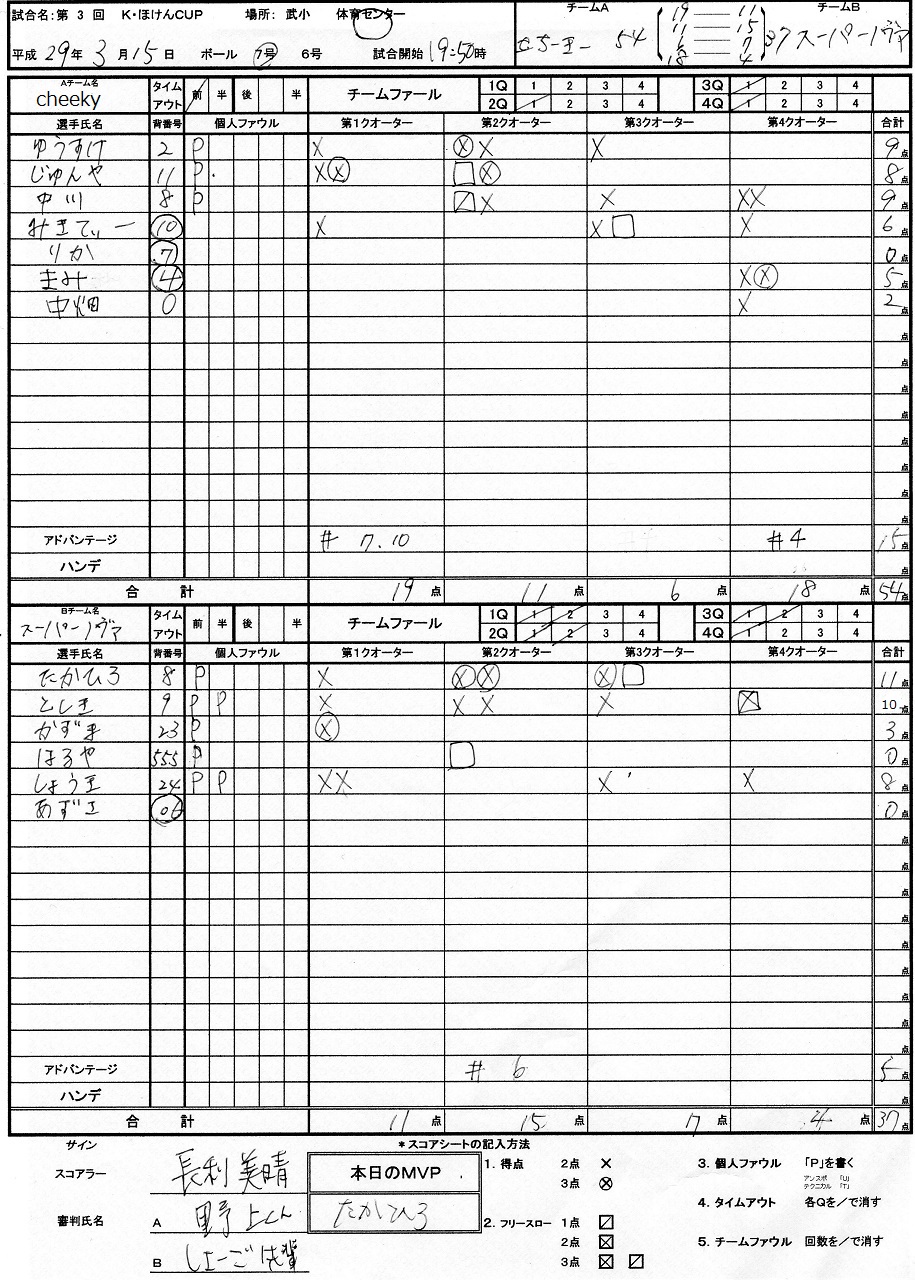 試合名:第 3 回 K・ほけんCUP 場所: 武小 体育センター
平成 29 年 3 月 15 日 ボール 7号 6号 試合開始 19:50 時
チームA チームB
54 19 11 37 スーパーノヴァ
11 15
6 7
18 4
Aチーム名 cheeky タイムアウト 前 半 後 半 チームファール 1Q 1 2 3 4 3Q 1 2 3 4
2Q 1 2 3 4 4Q 1 2 3 4
選手氏名 背番号 個人ファウル 第1クオーター 第2クオーター 第3クオーター 第4クオーター 合計
ゆうすけ 2 P X ⊗ X X 9点
じゅんや 11 P X ⊗ □ ⊗ 8点
中川 8 P ⧄ X X X X 9点
みきてぃー 10 X X □ X 6点
りか 7 0点
まみ 4 X ⊗ 5点
中畑 0 X 2点
アドバンテージ # 7.10 #4 15点
ハンデ 点
合 計 19 点 11 点 6 点 18 点 54点
Bチーム名 スーパーノヴァ タイムアウト 前 半 後 半 チームファール 1Q 1 2 3 4 3Q 1 2 3 4
2Q 1 2 3 4 4Q 1 2 3 4
選手氏名 背番号 個人ファウル 第1クオーター 第2クオーター 第3クオーター 第4クオーター 合計
たかひろ 8 P X ⊗ ⊗ ⊗ □ 11点
としき 9 P P X X X X ☒ 10点
かずま 23 P ⊗ 3点
はるや 555 P □ 0点
しょうま 24 P P X X X X 8点
あずさ 06 0点
アドバンテージ # 6 5点
ハンデ 点
合 計 11 点 15 点 7 点 4 点 37点
サイン *スコアシートの記入方法
スコアラー 長利 美晴
本日のMVP
たかひろ
審判氏名 A 野上くん
B しょーご先輩
1. 得点 2点 ×
3点 ⊗
2. フリースロー 1点 ⧄
2点 ☒
3点 ☒ ⧄
3. 個人ファウル 「P」を書く
アンスポ 「U」
テクニカル 「T」
4. タイムアウト 各Qを/で消す
5. チームファウル 回数を/で消す